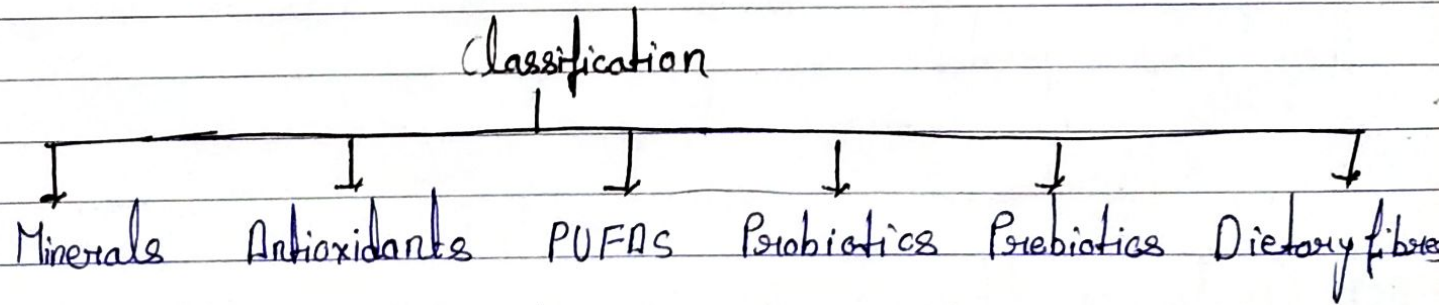 Classification
Minerals Antioxidants PUFAS Probiotics Prebiotics Dietary fibres